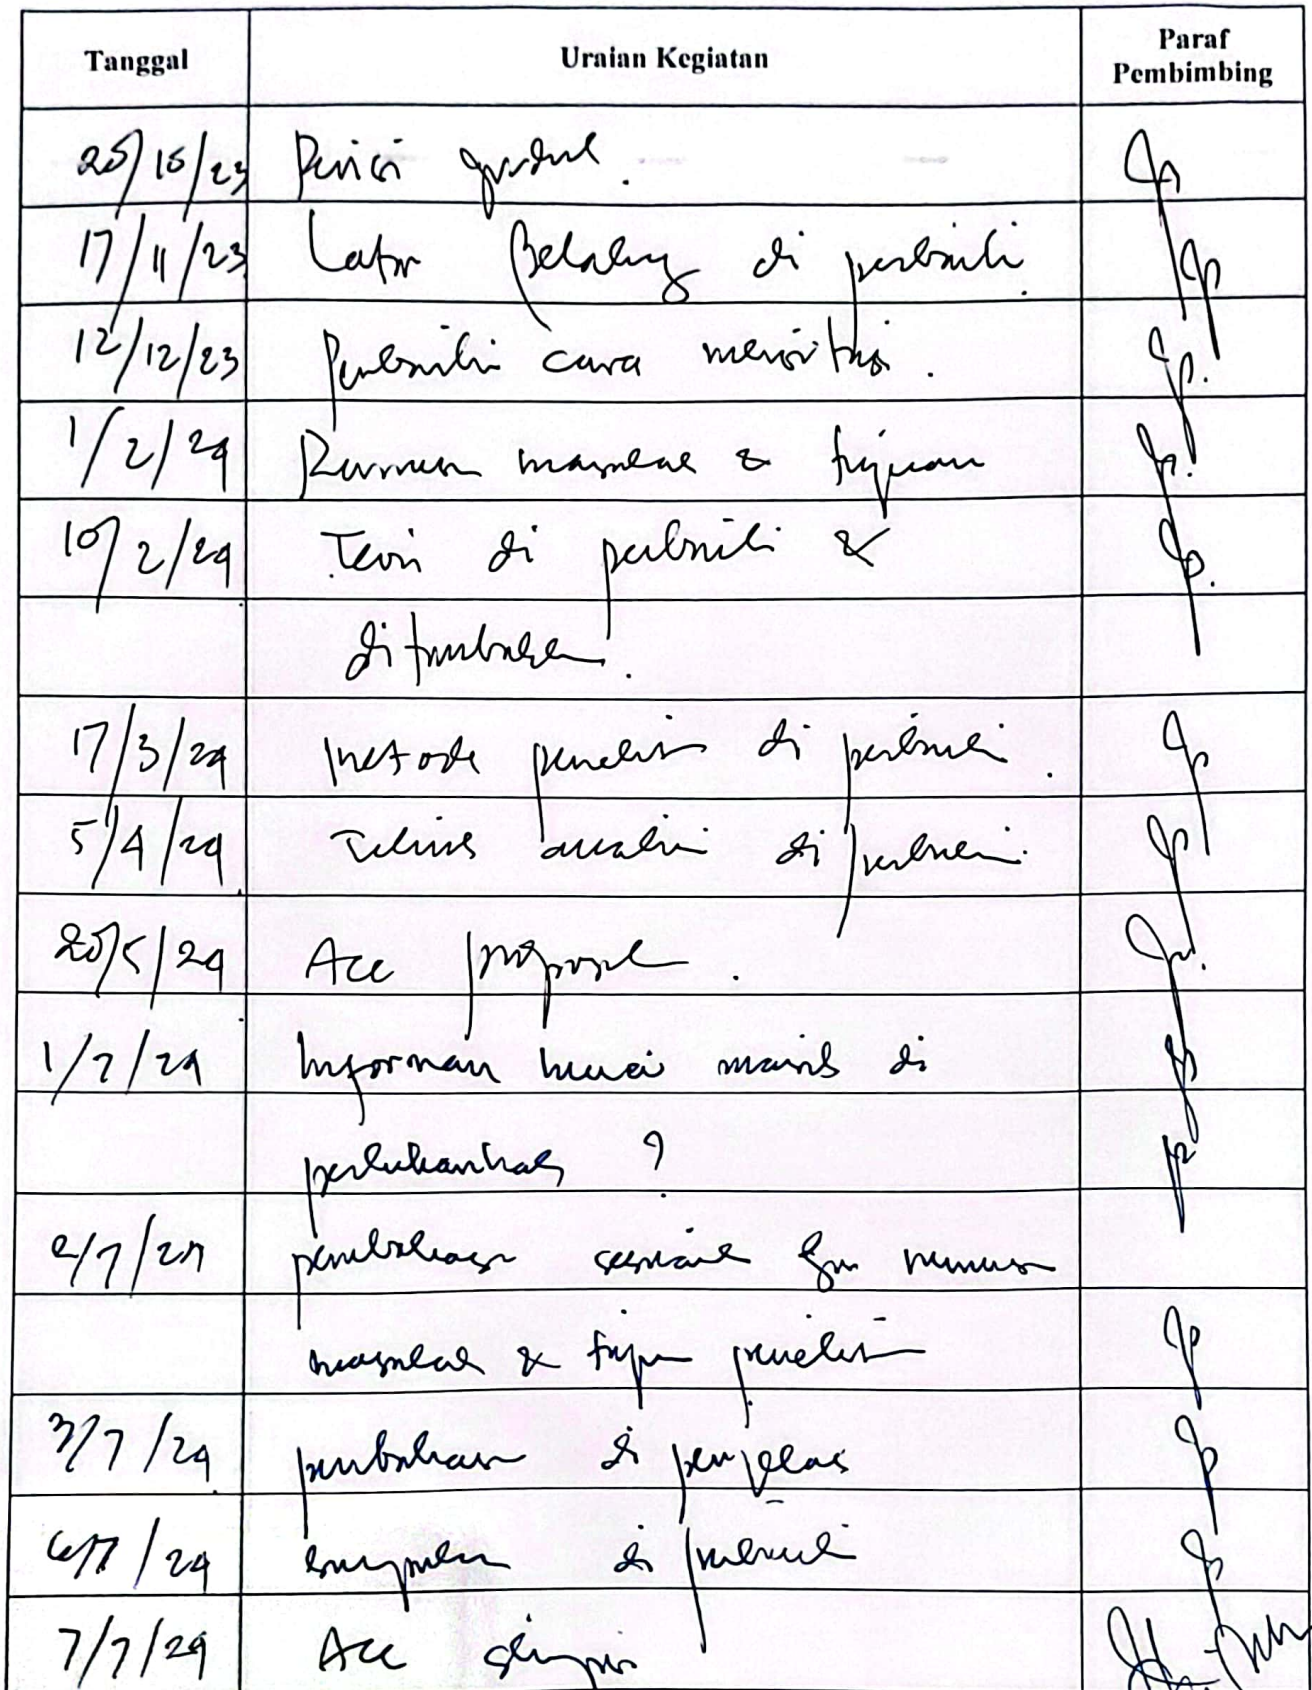 Tanggal Uraian Kegiatan Paraf Pembimbing
25/10/23 Revisi judul.
17/11/23 Latar Belakang di perbaiki.
12/12/23 Perbaiki cara mensitasi.
1/2/24 Rumusan masalah & tujuan
10/2/24 Teori di perbaiki &
ditambahkan.
17/3/24 Metode penelitian di perbaiki.
5/4/24 Teknis analisis di perbaiki.
20/5/24 Acc proposal.
1/7/24 Informan kunci masih di
perlukankah ?
2/7/24 pembahasan sesuaikan dgn rumusan
masalah & tujuan penelitian
3/7/24 pembahasan di perjelas
4/7/24 di perbaiki
7/7/24 Acc skripsi